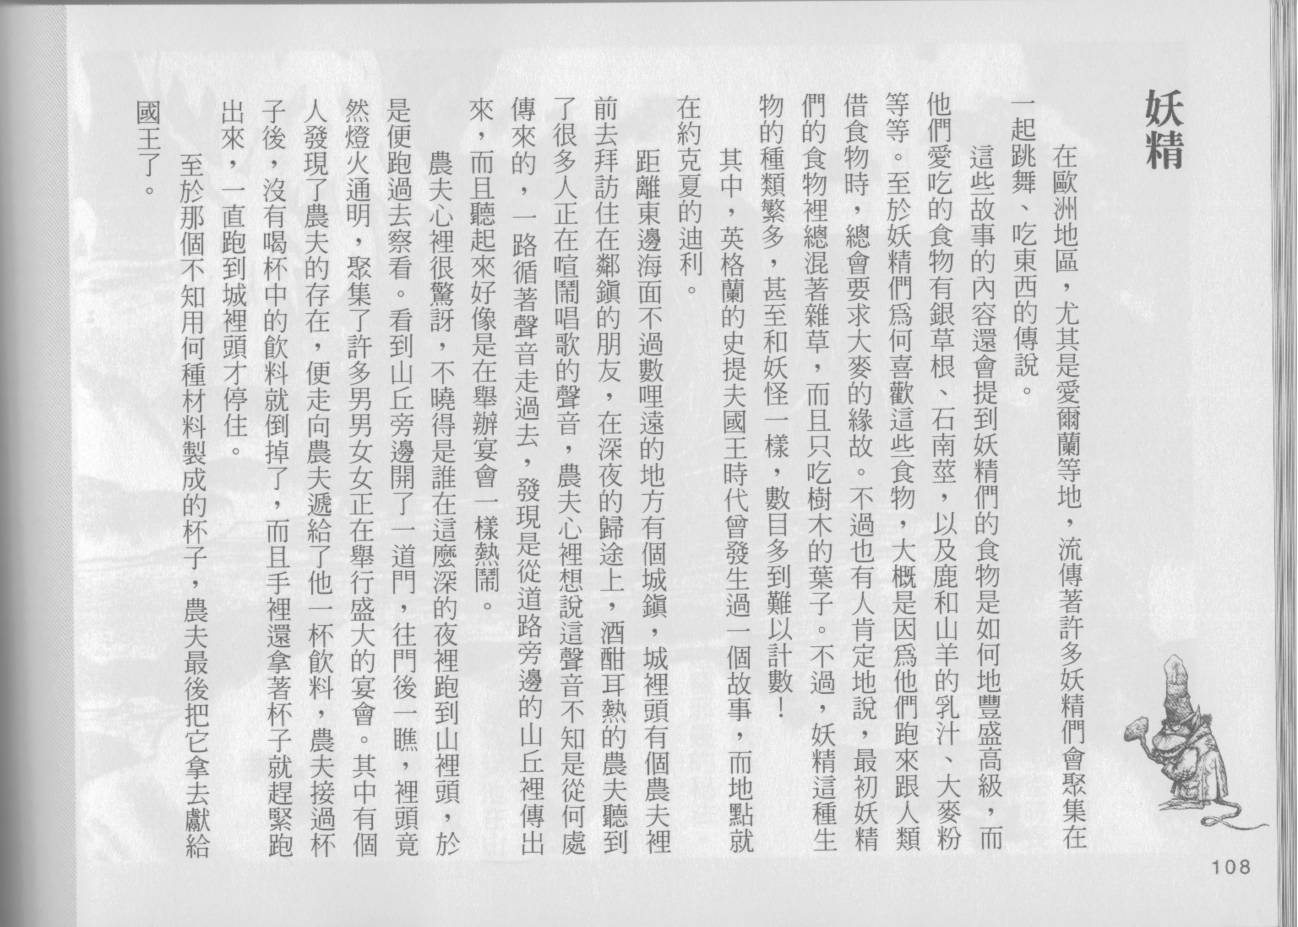 妖精
在歐洲地區，尤其是愛爾蘭等地，流傳著許多妖精們會聚集在
一起跳舞、吃東西的傳說。
這些故事的內容還會提到妖精們的食物是如何地豐盛高級，而
他們愛吃的食物有銀草根、石南莖，以及鹿和山羊的乳汁、大麥粉
等等。至於妖精們爲何喜歡這些食物，大概是因爲他們跑來跟人類
借食物時，總會要求大麥的緣故。不過也有人肯定地說，最初妖精
們的食物裡總混著雜草，而且只吃樹木的葉子。不過，妖精這種生
物的種類繁多，甚至和妖怪一樣，數目多到難以計數！
其中，英格蘭的史提夫國王時代曾發生過一個故事，而地點就
在約克夏的迪利。
距離東邊海面不過數哩遠的地方有個城鎮，城裡頭有個農夫裡
前去拜訪住在鄰鎮的朋友，在深夜的歸途上，酒酣耳熱的農夫聽到
了很多人正在喧鬧唱歌的聲音，農夫心裡想說這聲音不知是從何處
傳來的，一路循著聲音走過去，發現是從道路旁邊的山丘裡傳出
來，而且聽起來好像是在舉辦宴會一樣熱鬧。
農夫心裡很驚訝，不曉得是誰在這麼深的夜裡跑到山裡頭，於
是便跑過去察看。看到山丘旁邊開了一道門，往門後一瞧，裡頭竟
然燈火通明，聚集了許多男男女女正在舉行盛大的宴會。其中有個
人發現了農夫的存在，便走向農夫遞給了他一杯飲料，農夫接過杯
子後，沒有喝杯中的飲料就倒掉了，而且手裡還拿著杯子就趕緊跑
出來，一直跑到城裡頭才停住。
至於那個不知用何種材料製成的杯子，農夫最後把它拿去獻給
國王了。
108